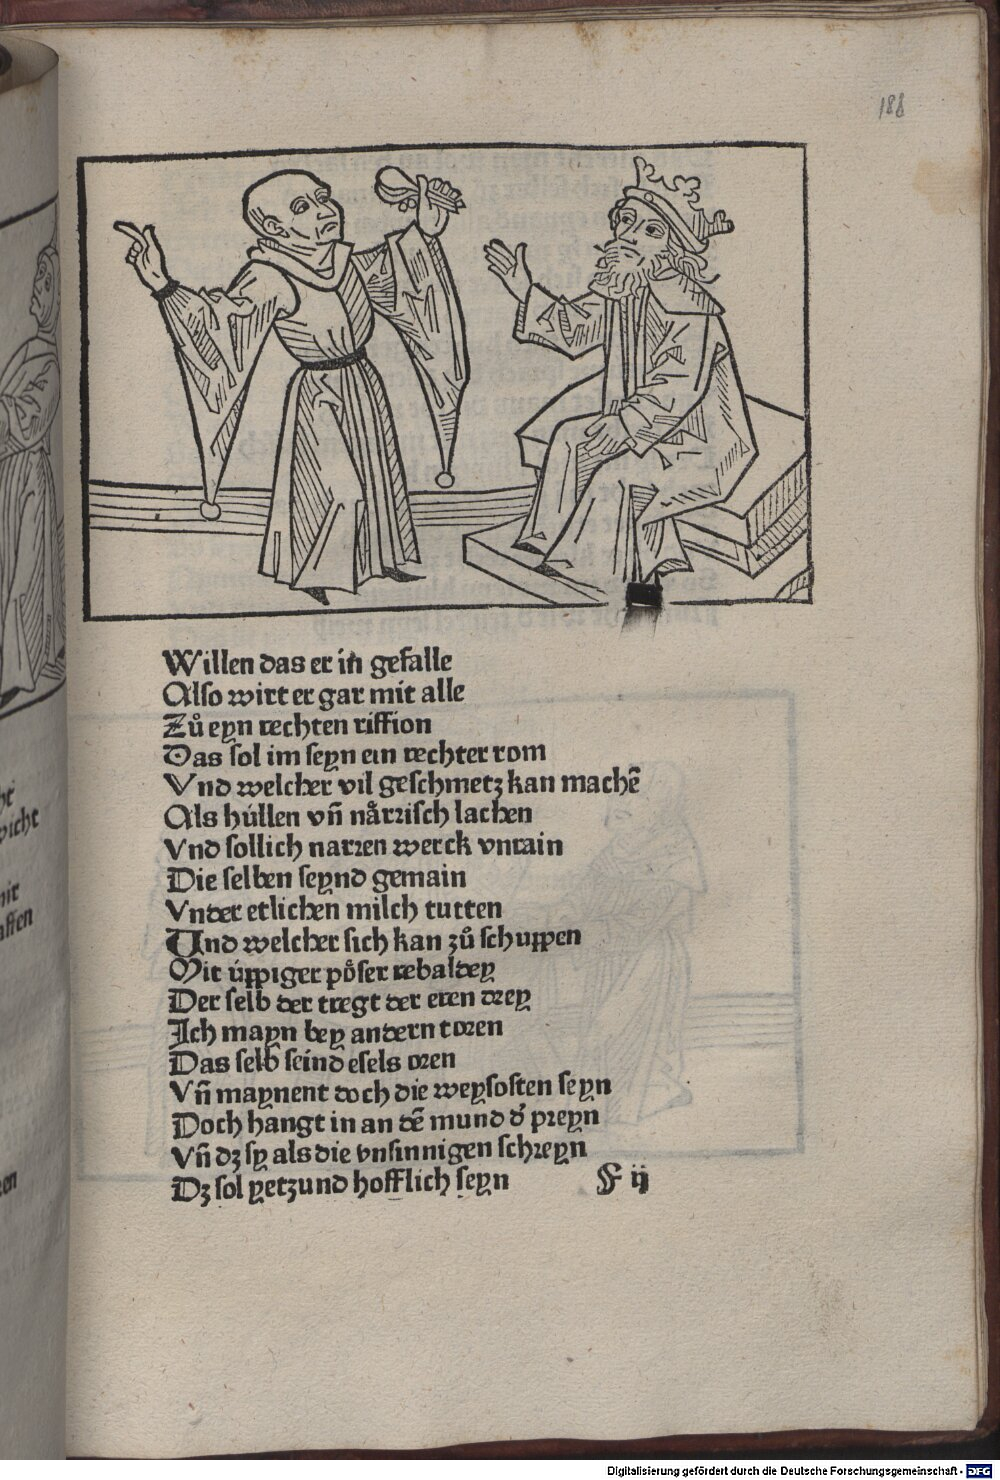 188
Willen das er in̄ gefalle
Also wirt er gar mit alle
Zů eyn rechten riffion
Das sol im seyn ein rechter rom
Vnd welcher vil geschmetz kan machē
Als húllen vn̄ nårrisch lachen
Vnd sollich narren werck vnrain
Die selben seynd gemain
Vnder etlichen milch tutten
Und welcher sich kan zů schuppen
Mit úppiger pőser rebaldey
Der selb der tregt der eren drey
Ich mayn bey andern toren
Das selb seind esels oren
Vn̄ maynent doch die weysosten seyn
Doch hangt in an dē mund d' preyn
Vn̄ dz sy als die vnsinnigen schreyn
Dz sol yetzund hofflich seyn F ij
Digitalisierung gefördert durch die Deutsche Forschungsgemeinschaft - DFG